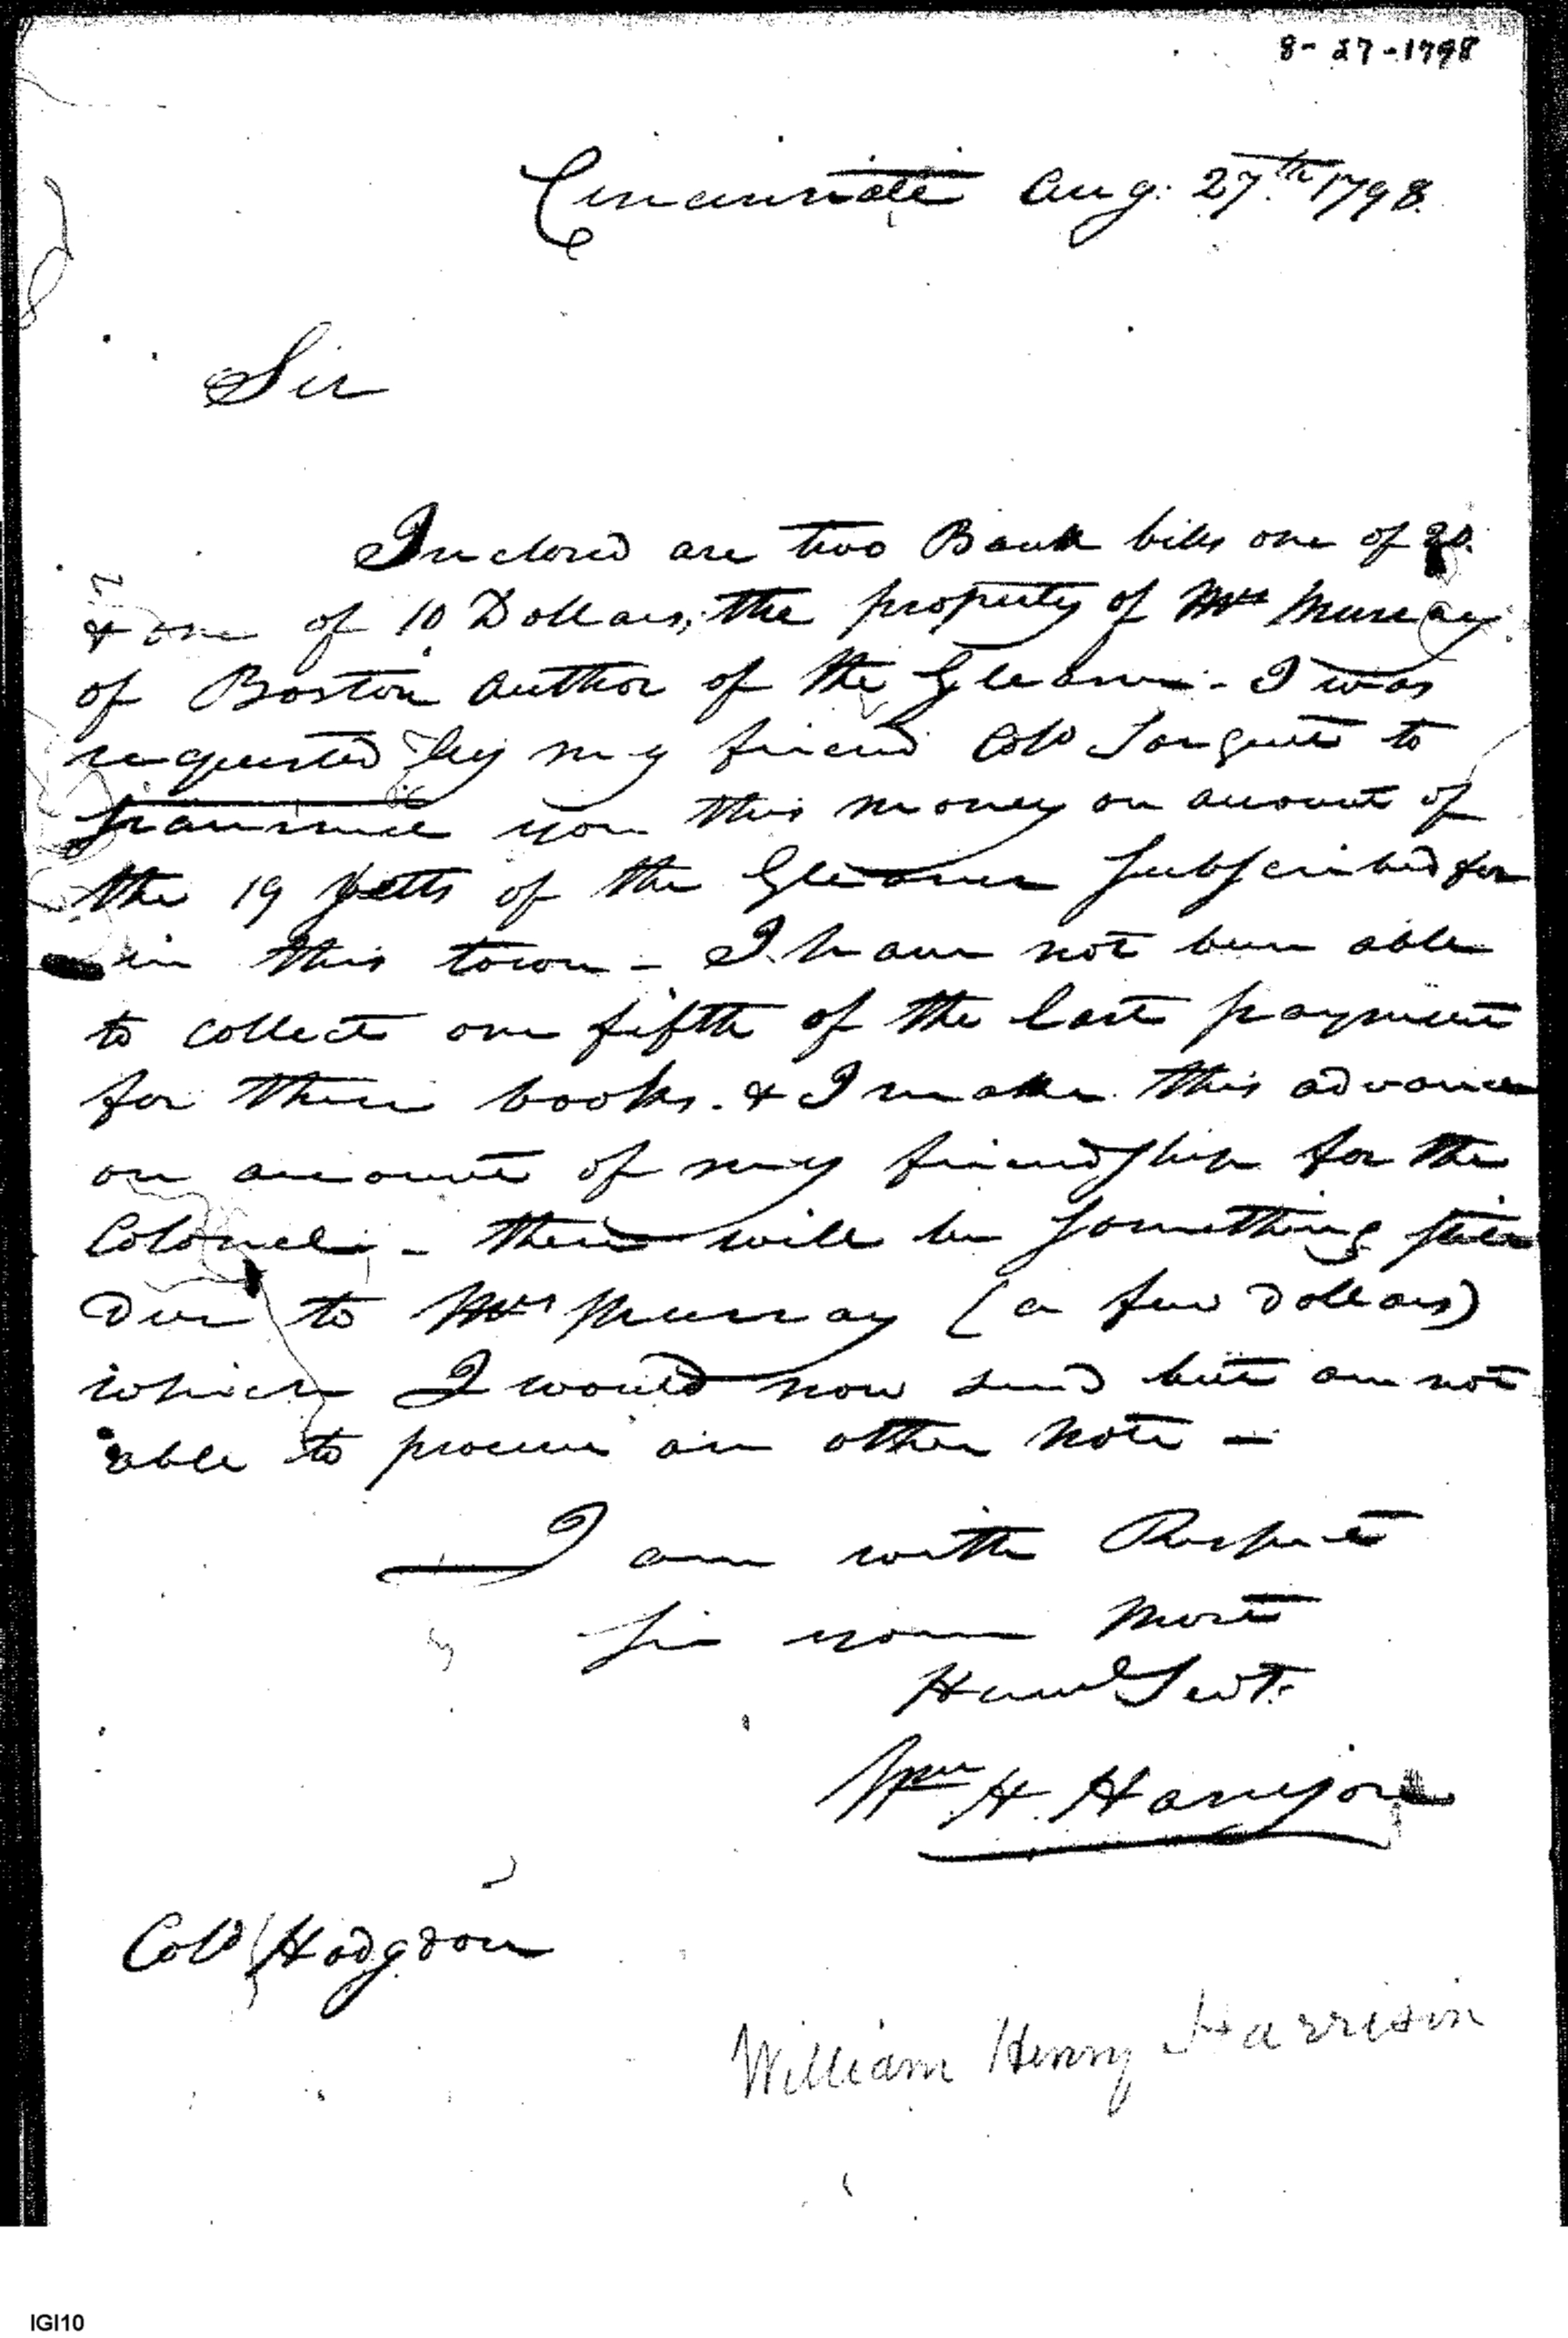 8-27-1798
Cincinnati Aug: 27.th 1798.
Sir
Inclosed are two Bank bills one of 20.
& one of 10 Dollars, the property of Mrs Murray
of Boston Author of the Gleaner - I was
requested by my friend Colo Sargent to
transmit you this money on account of
the 19 Setts of the Gleaner Subscribed for
in this town - I have not been able
to collect one fifth of the last payment
for these books. & I make this advance
on account of my friendship for the
Colonel - there will be something still
due to Mrs Murray (a few dollars)
which I would now send but am not
able to procure an other Note -
I am with Respect
Sir your Most
Humle Servt.
Wm H. Harrison
Colo Hodgdon
William Henry Harrison
IGI10